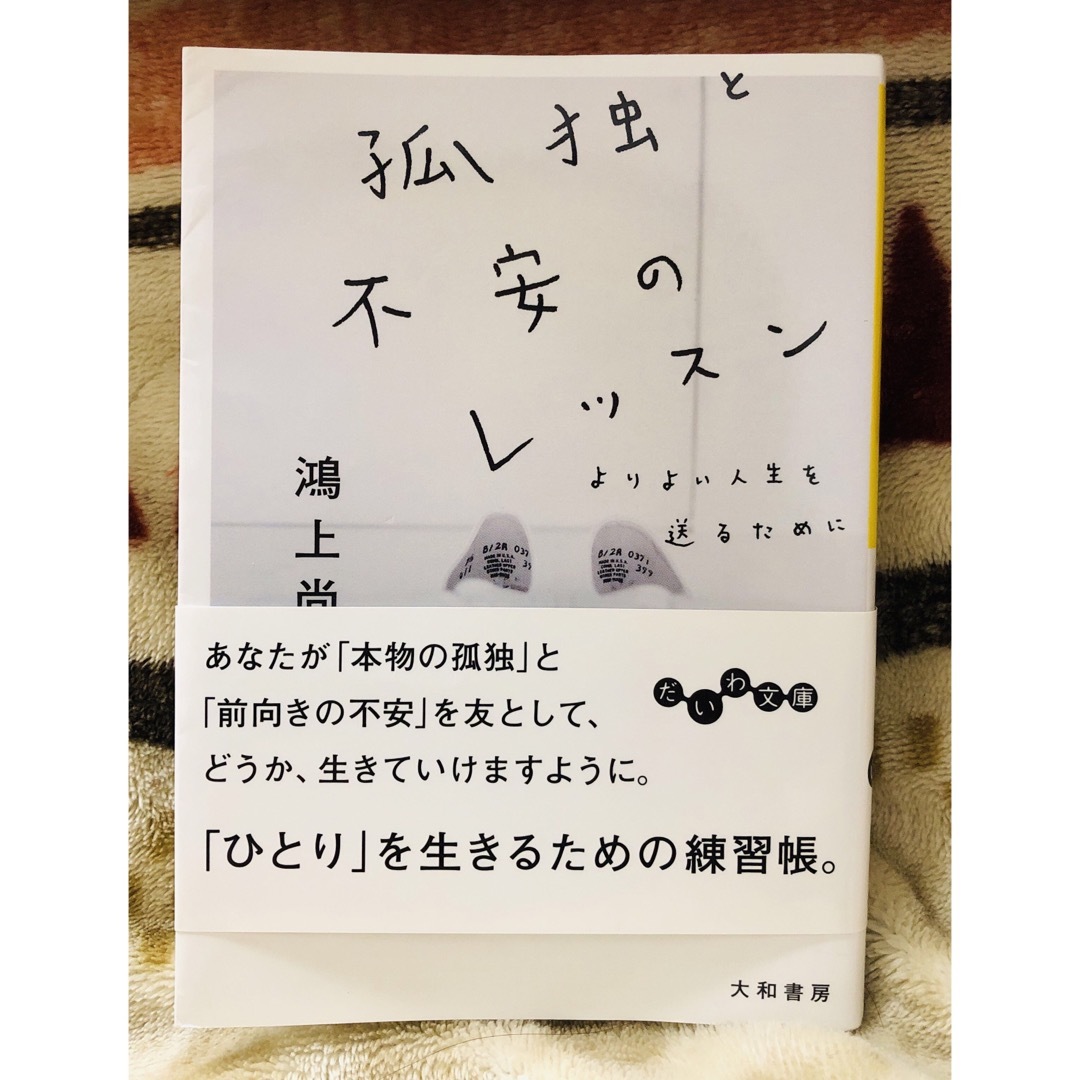 孤独と
不安の
レッスン
よりよい人生を
送るために
鴻上尚
B/2R 037
MADE IN U.S.A.
B/2R 0371
MADE IN U.S.A.
あなたが「本物の孤独」と
「前向きの不安」を友として、
どうか、生きていけますように。
だいわ文庫
「ひとり」を生きるための練習帳。
大和書房